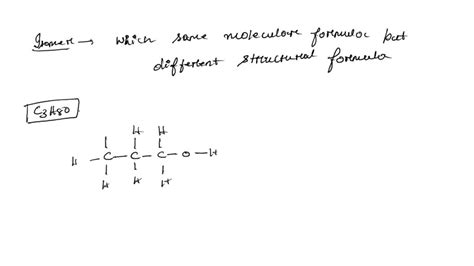 Isomers → which same moleculare formula but
different structural formula
C3H8O
H H
H - C - C - C - O - H
H H H